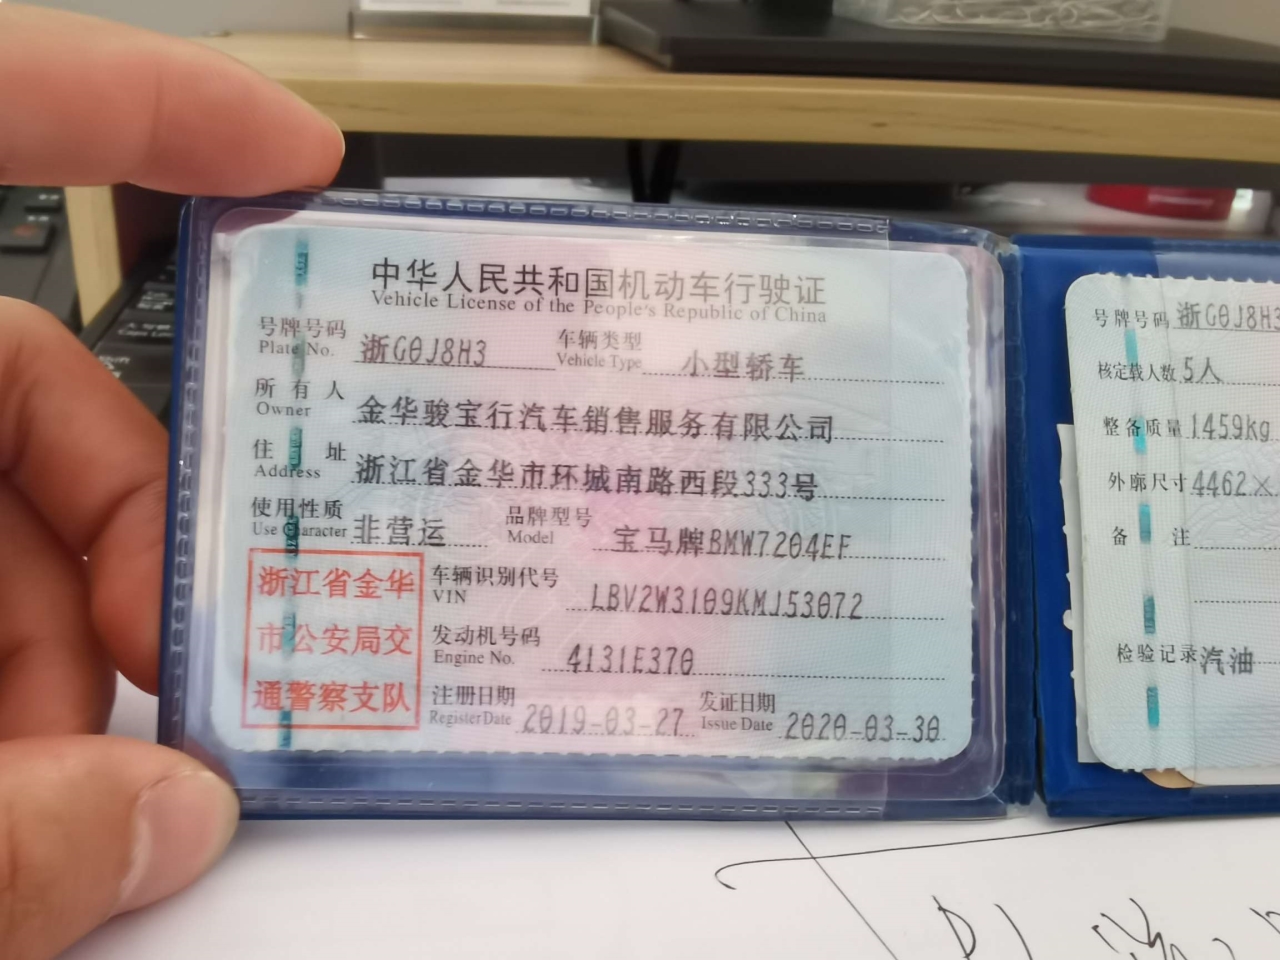 中华人民共和国机动车行驶证
Vehicle License of the People's Republic of China
号牌号码 浙G0J8H3 车辆类型 小型轿车
Plate No. Vehicle Type
所有人 金华骏宝行汽车销售服务有限公司
Owner
住址 浙江省金华市环城南路西段333号
Address
使用性质 非营运 品牌型号 宝马牌BMW7204EF
Use Character Model
浙江省金华
市公安局交
通警察支队
车辆识别代号 LBV2W3109KMJ53072
VIN
发动机号码 4131E370
Engine No.
注册日期 2019-03-27 发证日期 2020-03-30
Register Date Issue Date
号牌号码 浙G0J8H3
核定载人数 5人
整备质量 1459kg
外廓尺寸 4462×
备注
检验记录 汽油